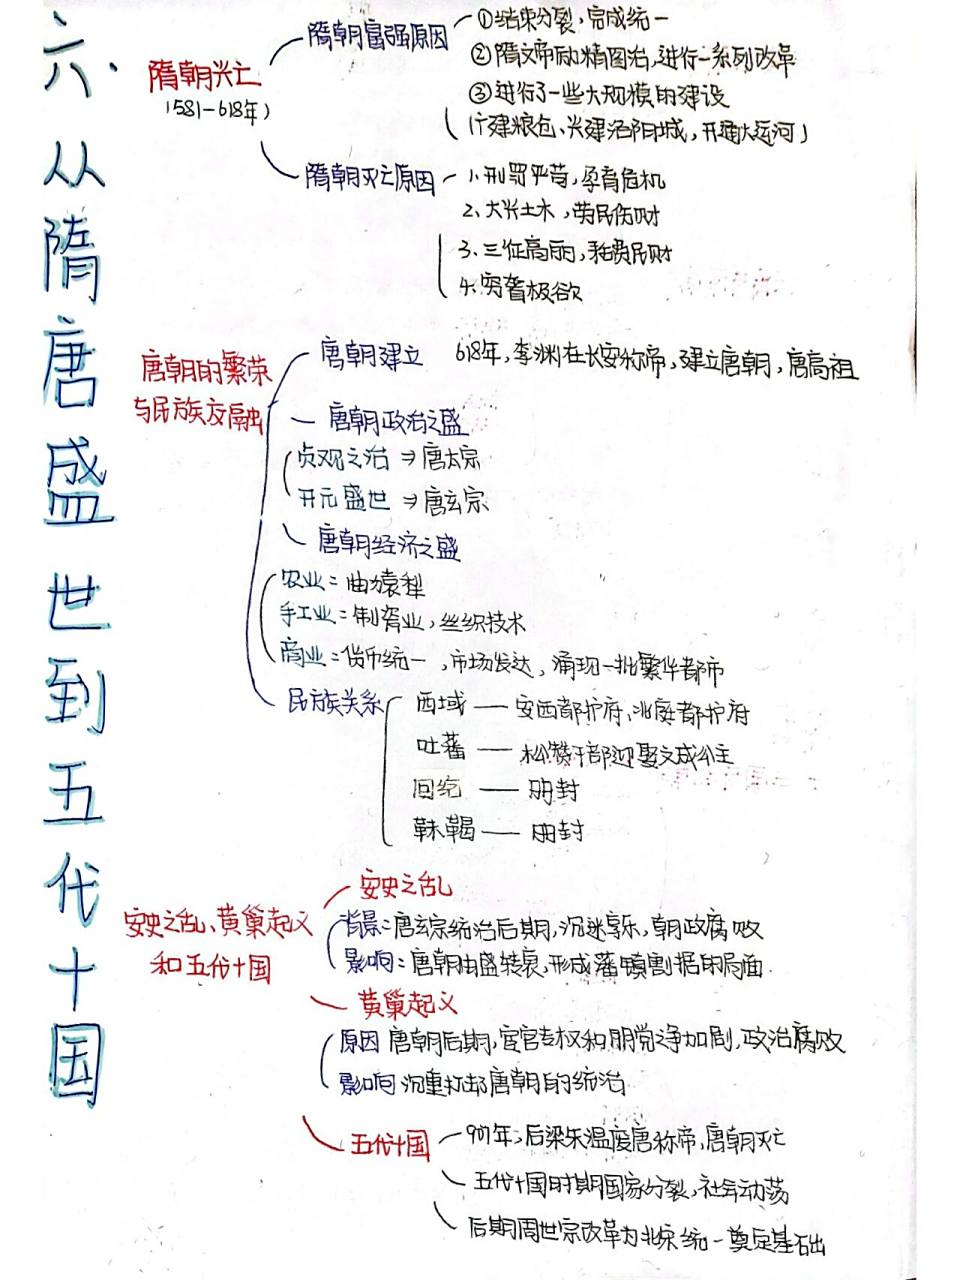 六、从隋唐盛世到五代十国
隋朝兴亡
(581-618年)
隋朝富强原因
①结束分裂,完成统一
②隋文帝励精图治,进行一系列改革
③进行了一些大规模的建设
(广建粮仓,兴建洛阳城,开通大运河)
隋朝灭亡原因
1.刑罚严苛,孕育危机
2.大兴土木,劳民伤财
3.三征高丽,耗费民财
4.穷奢极欲
唐朝的繁荣
与民族交融
唐朝建立
618年,李渊在长安称帝,建立唐朝,唐高祖
唐朝政治之盛
贞观之治⇒唐太宗
开元盛世⇒唐玄宗
唐朝经济之盛
农业:曲辕犁
手工业:制瓷业,丝织技术
商业:货币统一,市场发达,涌现一批繁华都市
民族关系
西域——安西都护府,北庭都护府
吐蕃——松赞干部迎娶文成公主
回纥——册封
靺鞨——册封
安史之乱、黄巢起义
和五代十国
安史之乱
背景:唐玄宗统治后期,沉迷享乐,朝政腐败
影响:唐朝由盛转衰,形成藩镇割据的局面.
黄巢起义
原因 唐朝后期,宦官专权和朋党之争加剧,政治腐败
影响 沉重打击唐朝的统治
五代十国
907年,后梁朱温废唐称帝,唐朝灭亡
五代十国时期国家分裂,社会动荡
后期周世宗改革为北宋统一奠定基础